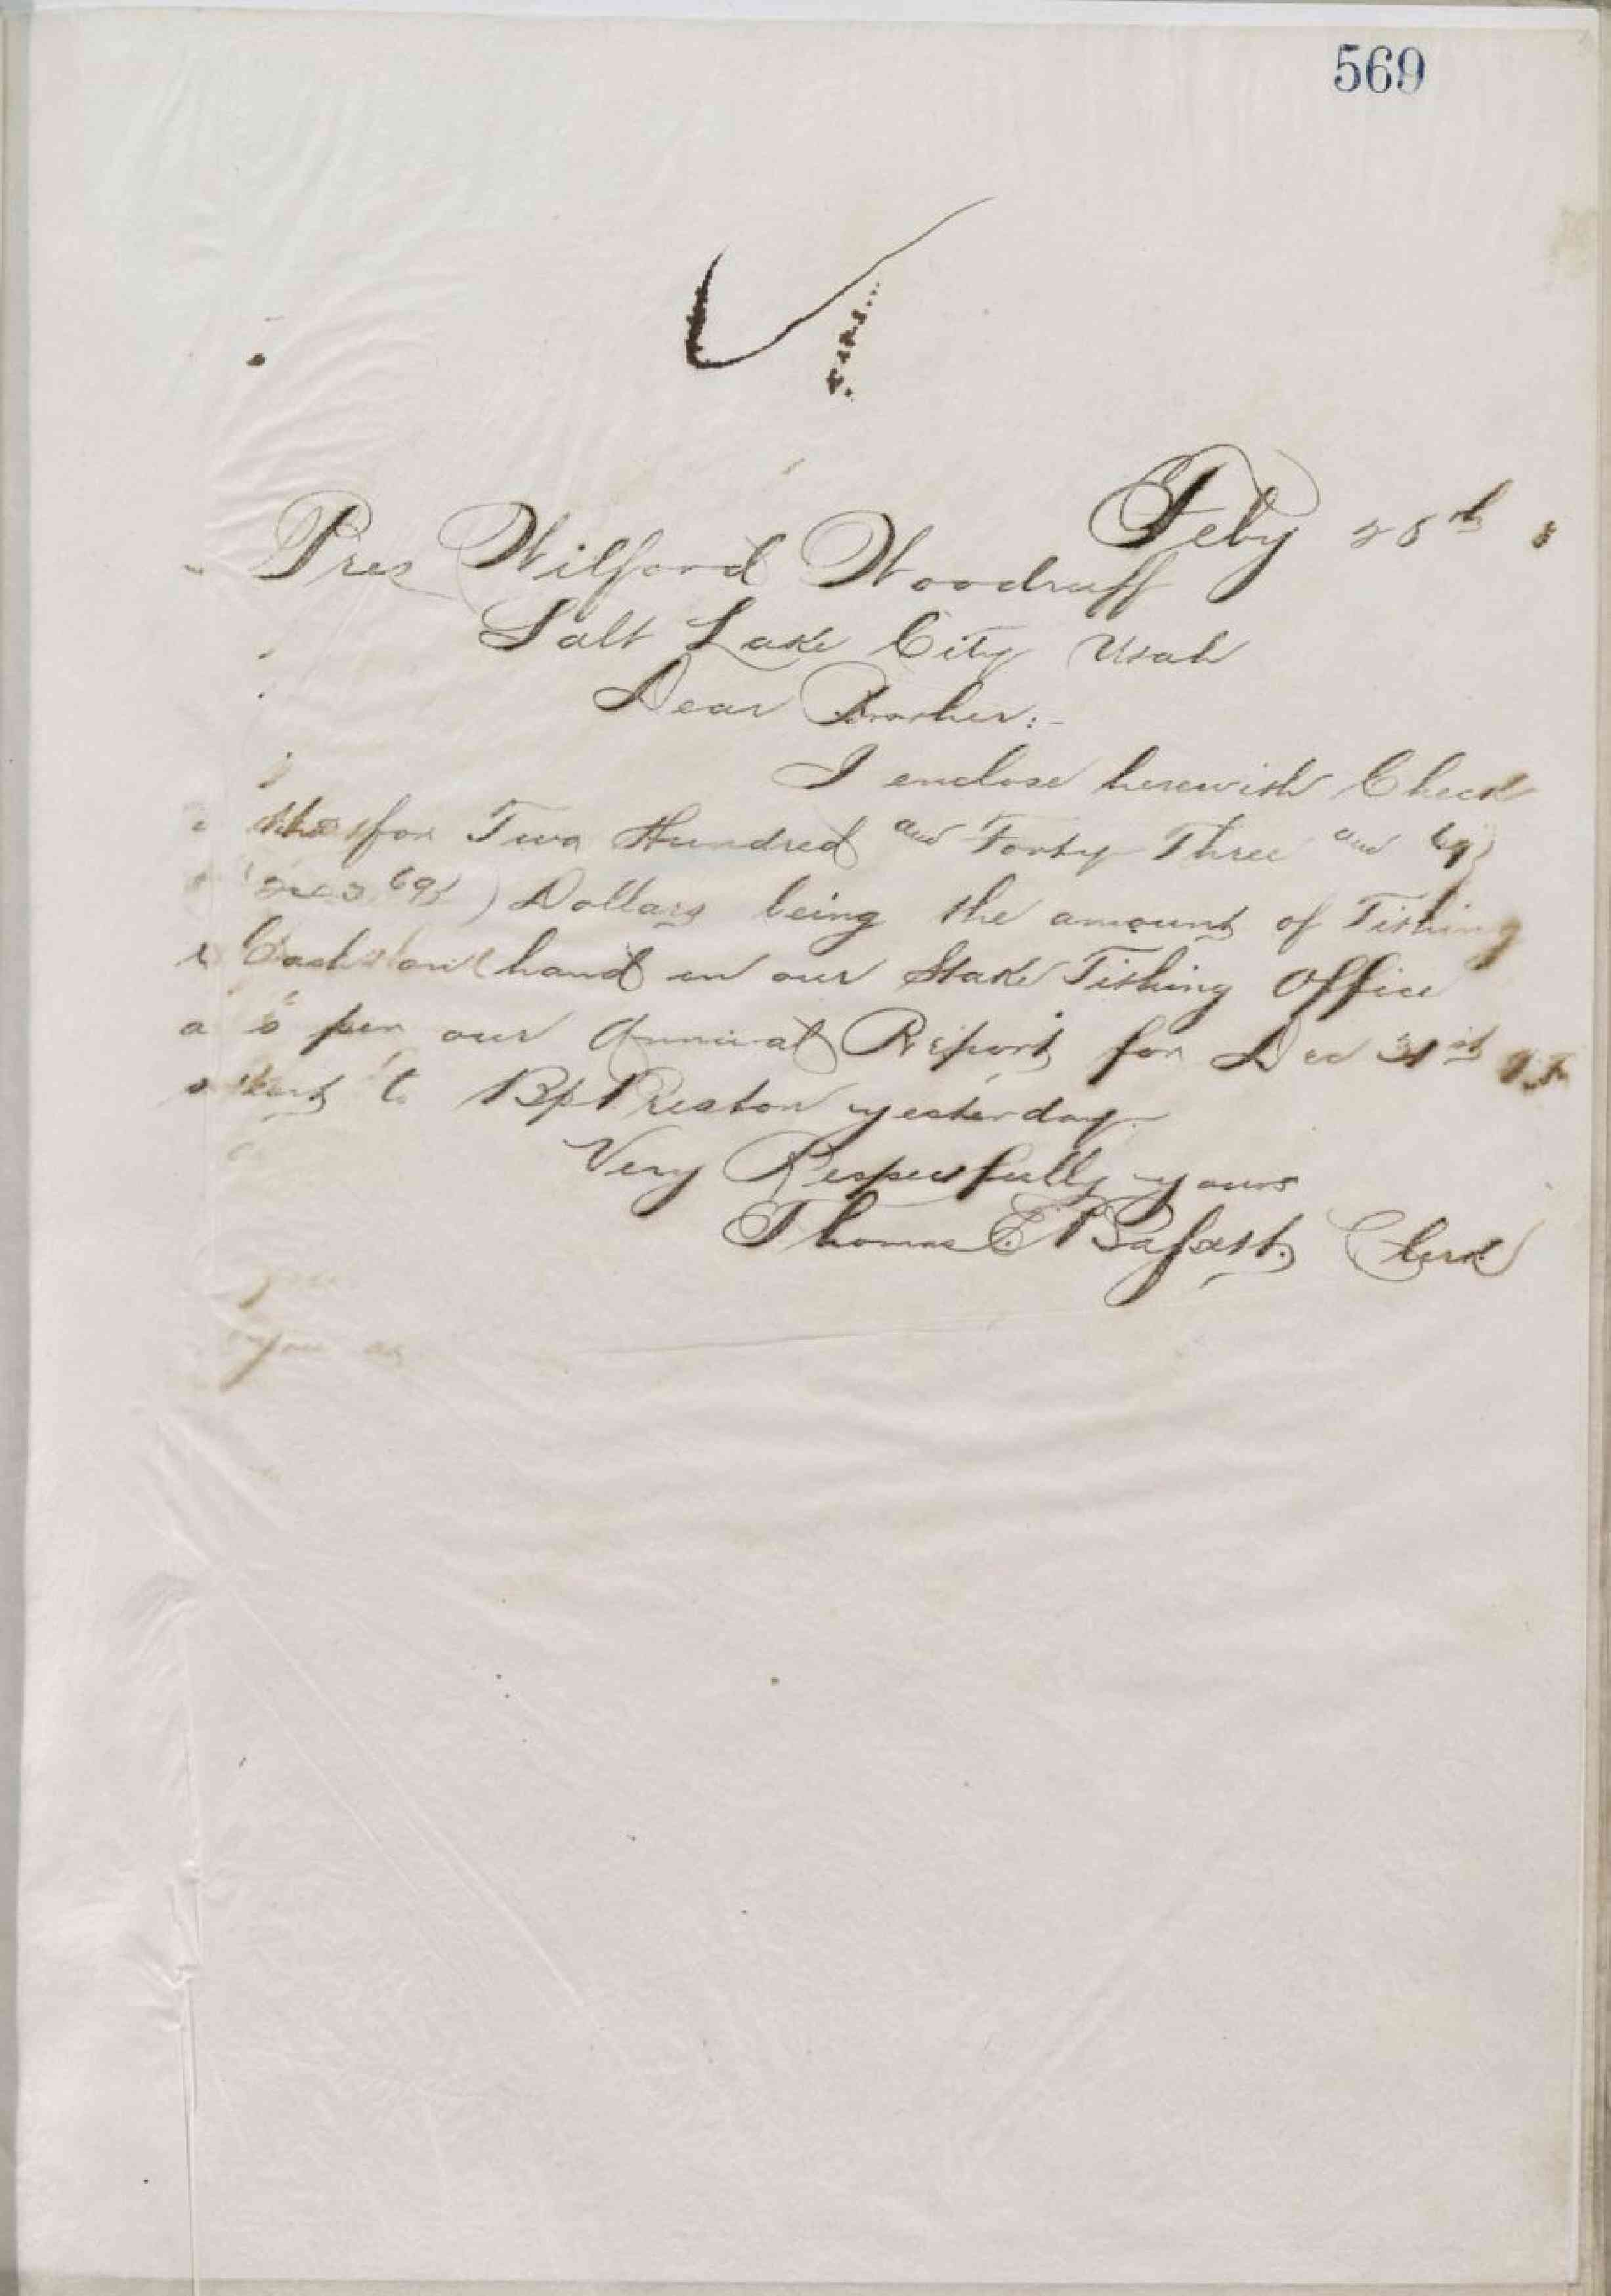 569
Feby 28th
Pres Wilford Woodruff
Salt Lake City Utah
Dear Brother:-
I enclose herewith Check
for Two Hundred and Forty Three and 69
243 69 ) Dollars being the amount of Tithing
Cash on hand in our Stake Tithing Office
as per our Annual Report for Dec 31st
sent to Bp Preston yesterday.
Very Respectfully yours
Thomas E. Clerk
you as